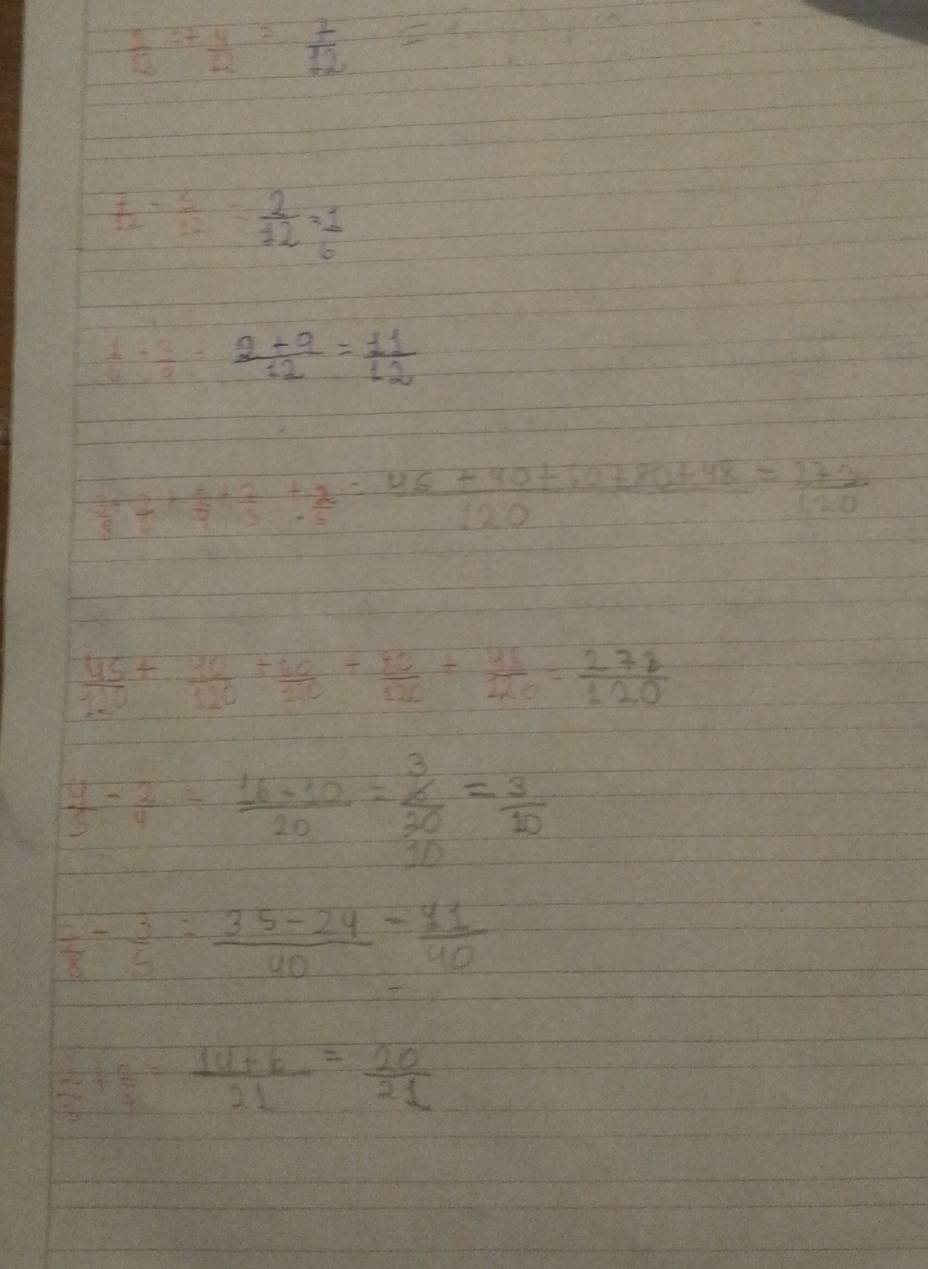 3/12 + 4/12 = 7/12 =
7/12 - 5/12 = 2/12 = 1/6
1/6 + 3/4 = 2+9/12 = 11/12
3/8 + 2/6 + 2/4 + 2/3 + 2/5 = 45+40+60+80+48/120 = 273/120
45/120 + 40/120 + 60/120 + 80/120 + 48/120 = 273/120
4/5 - 2/4 = 16-10/20 = 3 6/20 10 = 3/10
7/8 - 3/5 = 35-24/40 - 11/40
2/3 + 2/7 = 14+6/21 = 20/21